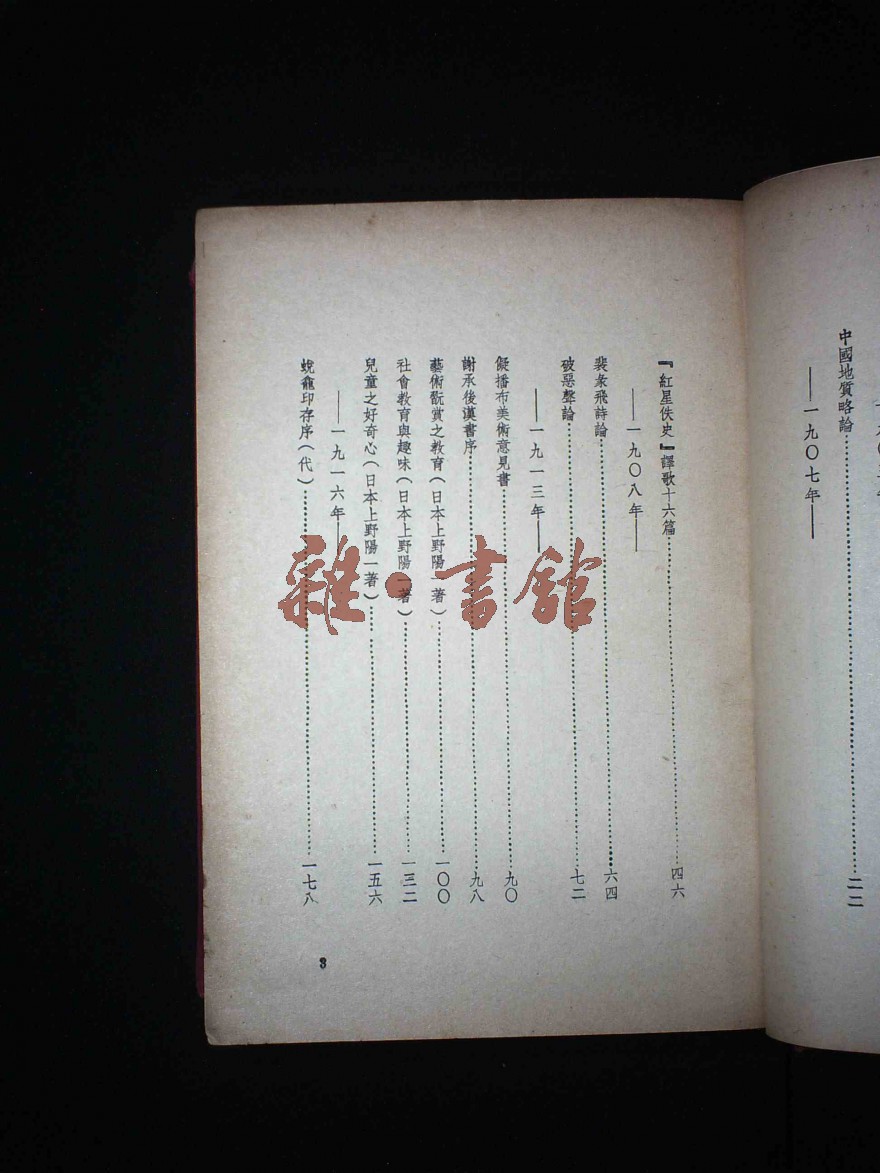 中國地質略論……二二
——一九〇七年——
『紅星佚史』譯歌十六篇……四六
——一九〇八年——
裴彖飛詩論……六四
破惡聲論……七二
——一九一三年——
儗播布美術意見書……九〇
謝承後漢書序……九八
藝術翫賞之教育（日本上野陽一著）……一〇〇
社會教育與趣味（日本上野陽一著）……一三二
兒童之好奇心（日本上野陽一著）……一五六
——一九一六年——
蛻龕印存序（代）……一七八
3
雜·書館